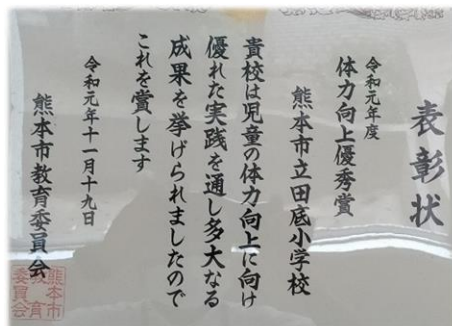 表彰状
令和元年度
体力向上優秀賞
熊本市立田底小学校
貴校は児童の体力向上に向け
優れた実践を通し多大なる
成果を挙げられましたので
これを賞します
令和元年十一月十九日
熊本市教育委員会
熊本市
教育
委員会